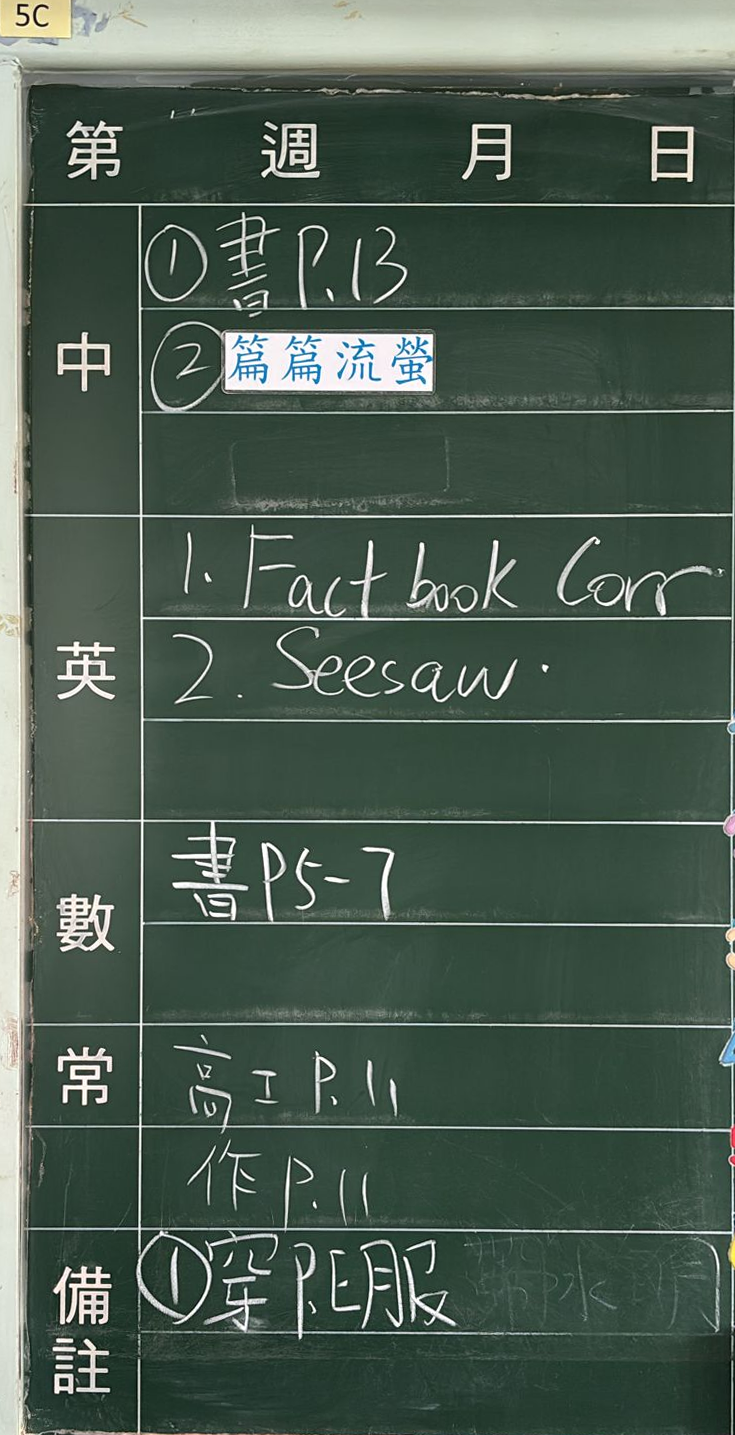 5C
第 週 月 日
中
①書P.13
②篇篇流螢
英
1. Fact book Corr
2. Seesaw.
數
書P5-7
常
高工 P.11
作 P.11
備註
①穿P.E服